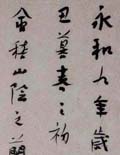 永和九年歲
丑暮春之初
會稽山陰之蘭